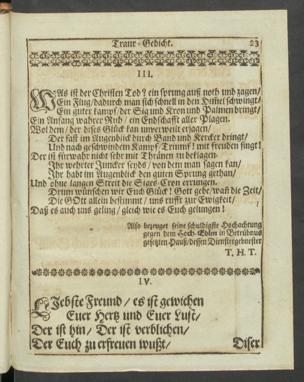 Traur-Gedicht. 23
III.
WAs ist der Christen Tod? ein sprung auß noth und zagen/
Ein Flug/dadurch man sich schnell in den Himel schwingt/
Ein guter kampf/ der Sig und Kron und Palmen bringt/
Ein Anfang wahrer Ruh/ ein Endschafft aller Plagen.
Wol dem/ der dises Glück kan unverweilt erjagen/
Der fast im Augenblick durch Band und Kercker dringt/
Und nach geschwindem Kampf/ Triumf! mit freuden singt!
Der ist fürwahr nicht sehr mit Thränen zu beklagen.
Ihr wehrter Juncker seyds/ von dem man sagen kan/
Ihr habt im Augenblick den guten Sprung gethan/
Und ohne langen Streit die Sieges Cron errungen.
Drum wünschen wir Euch Glück! Gott gebe/ daß die Zeit/
Die GOtt allein bestimmt/ uns rufft zur Ewigkeit/
Daß es auch uns geling/ gleich wie es Euch gelungen!
Also bezeuget seine schuldigste Hochachtung
gegen dem Hoch-Edlen in Betrübnus
gesetzten Hauß/dessen Dienstergebnester
T. H. T.
IV.
LIebste Freund/ es ist gewichen
Euer Hertz und Euer Lust/
Der ist hin/ Der ist verblichen/
Der Euch zu erfreuen wußt/
Diser